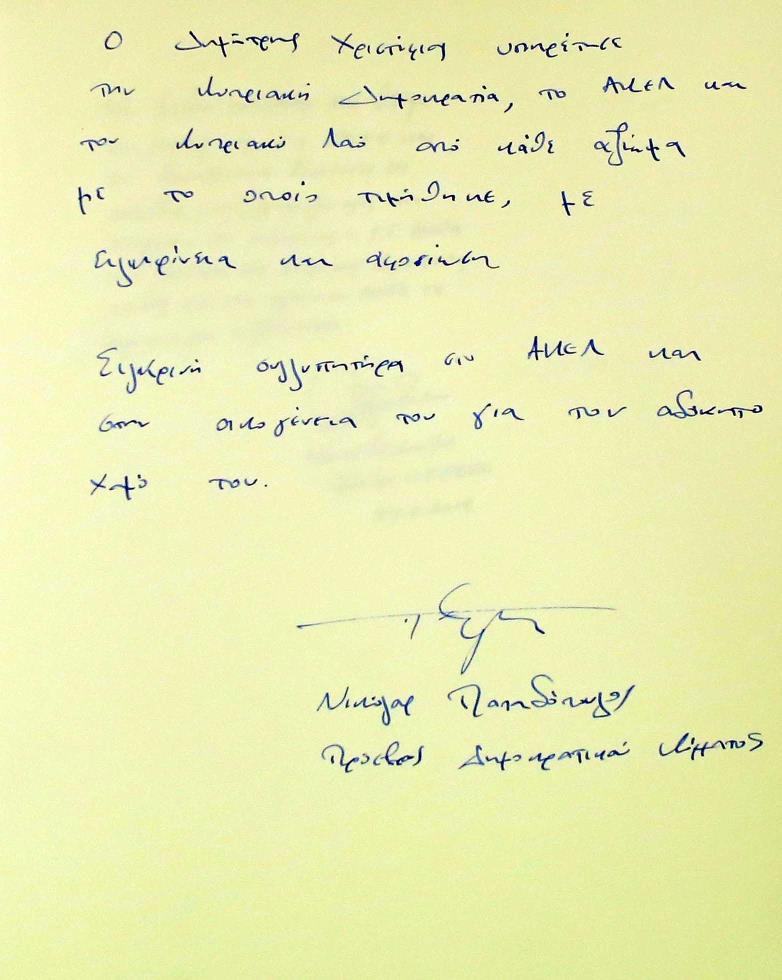 Ο Δημήτρης Χριστόφιας υπηρέτησε
την Κυπριακή Δημοκρατία, το ΑΚΕΛ και
τον Κυπριακό Λαό από κάθε αξίωμα
με το οποίο τιμήθηκε, με
ειλικρίνεια και αφοσίωση
Ειλικρινή συλλυπητήρια στο ΑΚΕΛ και
στην οικογένεια του για τον αδόκητο
χαμό του.
Νικόλας Παπαδόπουλος
Πρόεδρος Δημοκρατικού Κόμματος